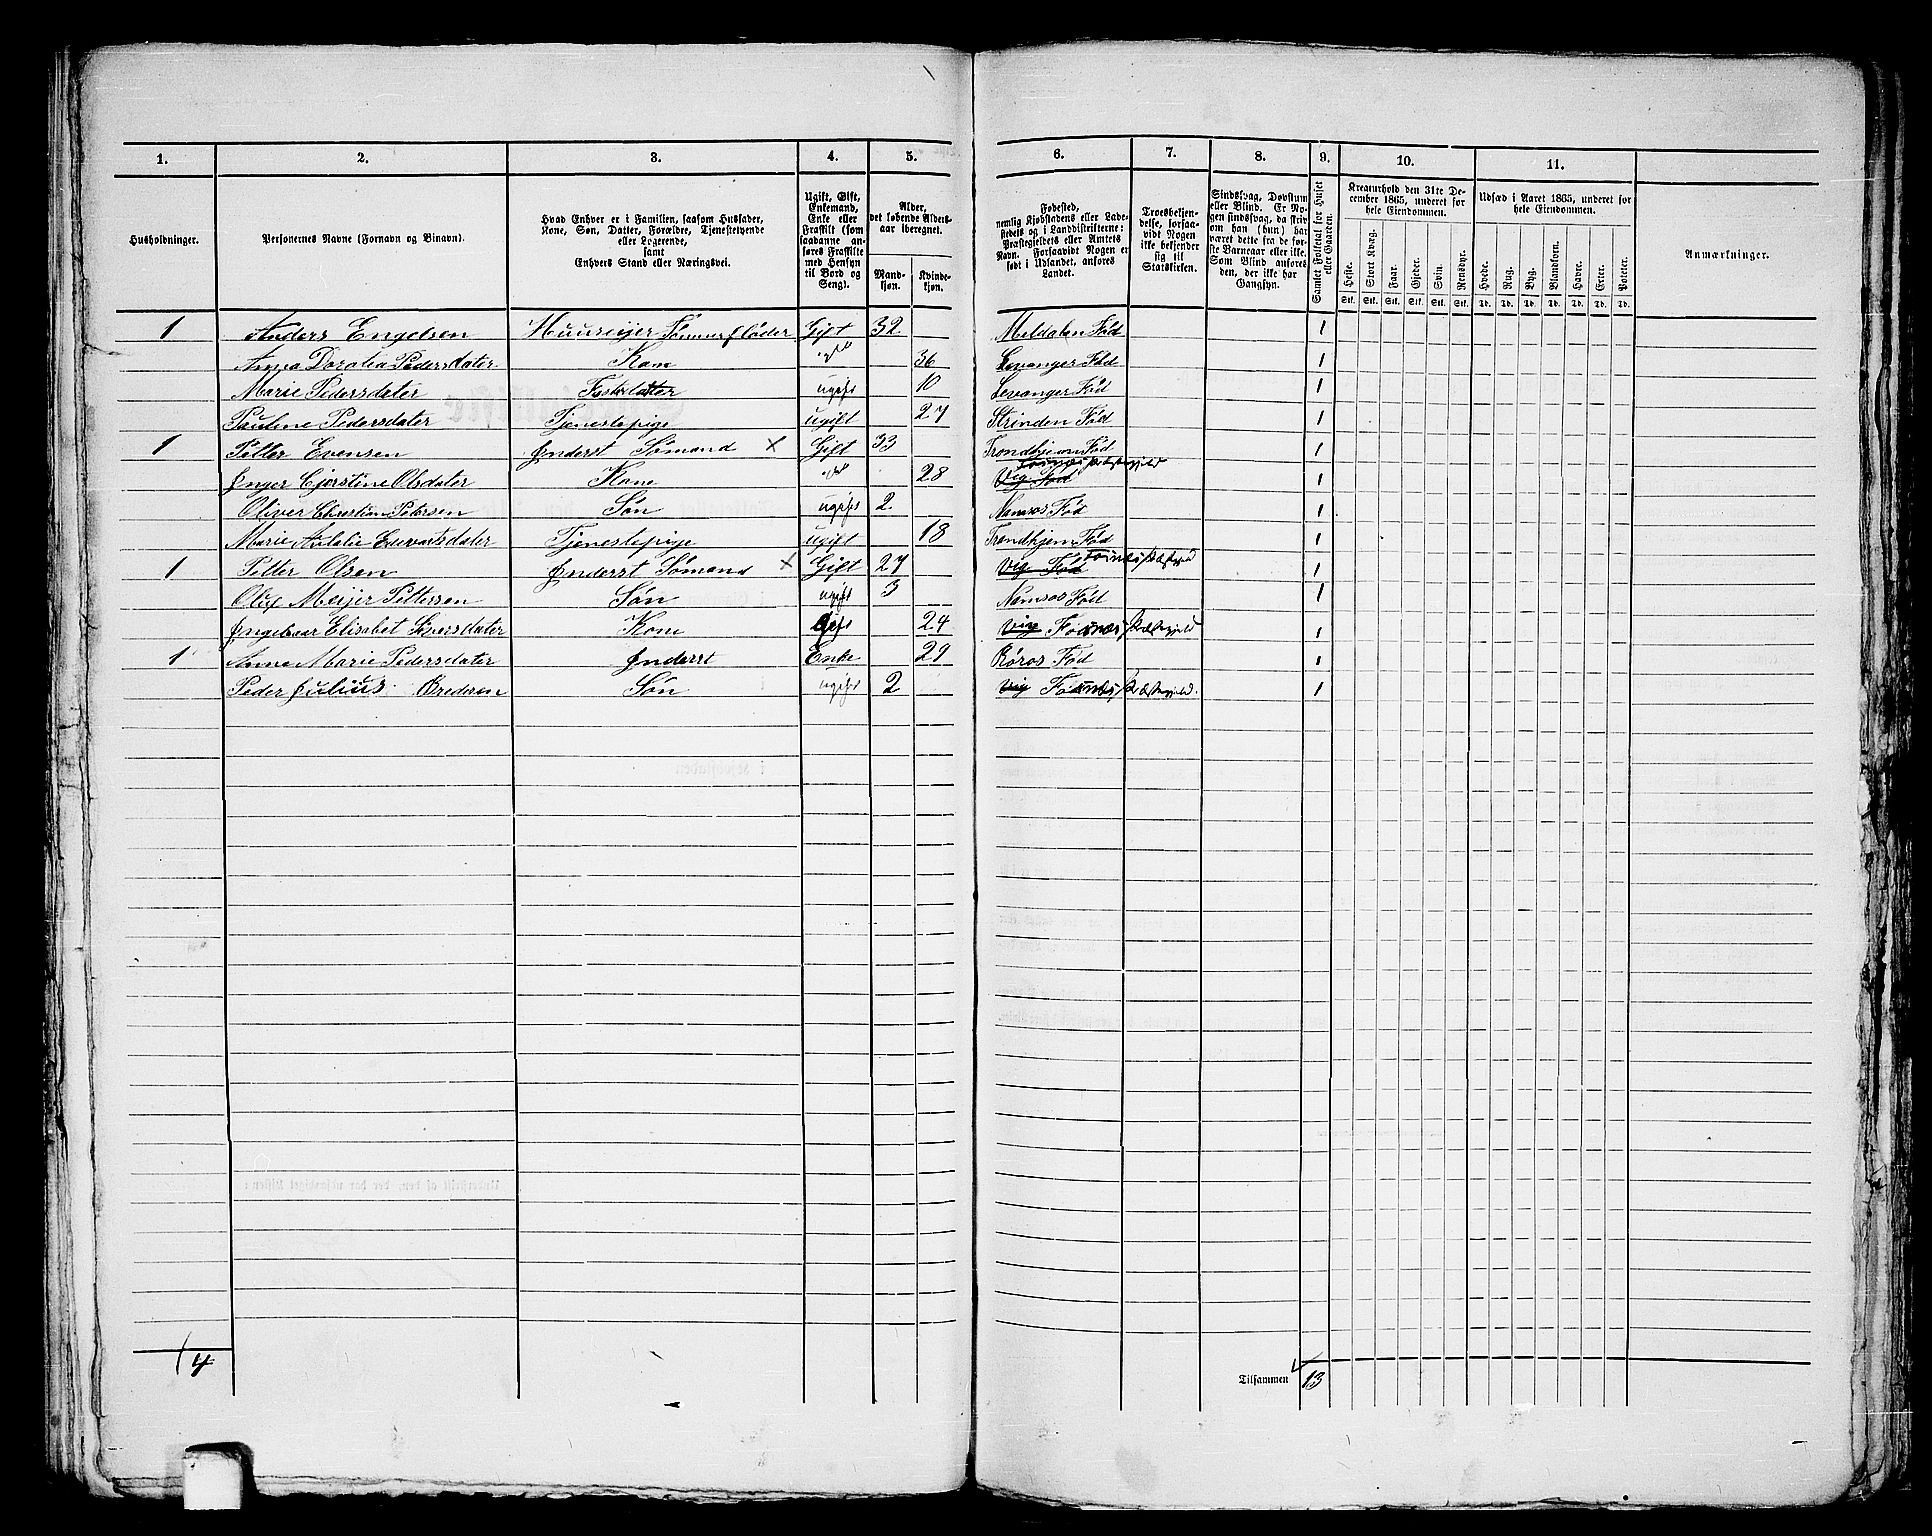 1. 2. 3. 4. 5. 6. 7. 8. 9. 10. 11.
Husholdninger.
Personernes Navne (Fornavn og Binavn).
Hvad Enhver er i Familien, saasom Husfader,
Kone, Søn, Datter, Forældre, Tjenestetyende
eller Logerende,
samt
Enhvers Stand eller Næringsvei.
Ugift, Gift,
Enkemand,
Enke eller
Fraskilt (som
saadanne an-
føres Fraskilte
med Hensyn
til Bord og
Seng).
Alder,
det løbende Alders-
aar iberegnet.
Mand-
kjøn.
Kvinde-
kjøn.
Fødested,
nemlig Kjøbstadens eller Lade-
stedets og i Landdistrikterne:
Præstegjeldets eller Amtets
Navn. Forsaavidt Nogen er
født i Udlandet, anføres
Landet.
Troesbekjen-
delse, forsaa-
vidt Nogen
ikke bekjender
sig til
Statskirken.
Sindssvag, Døvstum
eller Blind. Er No-
gen sindssvag, da skriv
om han (hun) har
været dette fra de før-
ste Barneaar eller ikke.
Som Blind anføres
den, der ikke har
Gangsyn.
Samlet Folketal for Huset
eller Gaarden.
Kreaturhold den 31te De-
cember 1865, underet for
hele Eiendommen.
Heste. Stort Kvæg. Faar. Gjeder. Svin. Rensdyr.
Stk. Stk. Stk. Stk. Stk. Stk.
Udsæd i Aaret 1865, underet for
hele Eiendommen.
Hvede. Rug. Byg. Blandkorn. Havre. Erter. Poteter.
Td. Td. Td. Td. Td. Td. Td.
Anmærkninger.
1 Anders Engelsen Huuseier Tømmerfløder Gift 32 Meldalen Fød 1
Anna Dorotea Pedersdater Kone 36 Levanger Fød 1
Marie Pedersdater Fosterdatter ugift 10 Levanger Fød 1
Pauline Pedersdater Tjenestepige ugift 27 Strinden Fød 1
1 Petter Evensen Inderst Sømand × Gift 33 Trondhjem Fød 1
Inger Cjerstine Olsdater Kone 28 Vig Fød Fosnæs Præstegjeld 1
Oliver Christian Petersen Søn ugift 2 Namsos Fød 1
Marie Edevartsdater Tjenestepige ugift 18 Trondhjem Fød 1
1 Petter Olsen Inderst Sømand × Gift 27 Vig Fød Fosnæs Præstegjeld 1
Olaf Meyer Pettersen Søn ugift 3 Namsos Fød 1
Ingebaar Elisabet Siversdater Kone Gift 24 Vig Fosnæs Præstegjeld 1
1 Anne Marie Pedersdater Inderst Enke 29 Røros Fød 1
Peder Julius Bredesen Søn ugift 2 Vig Fosnæs Præstegjeld. 1
4
Tilsammen 13